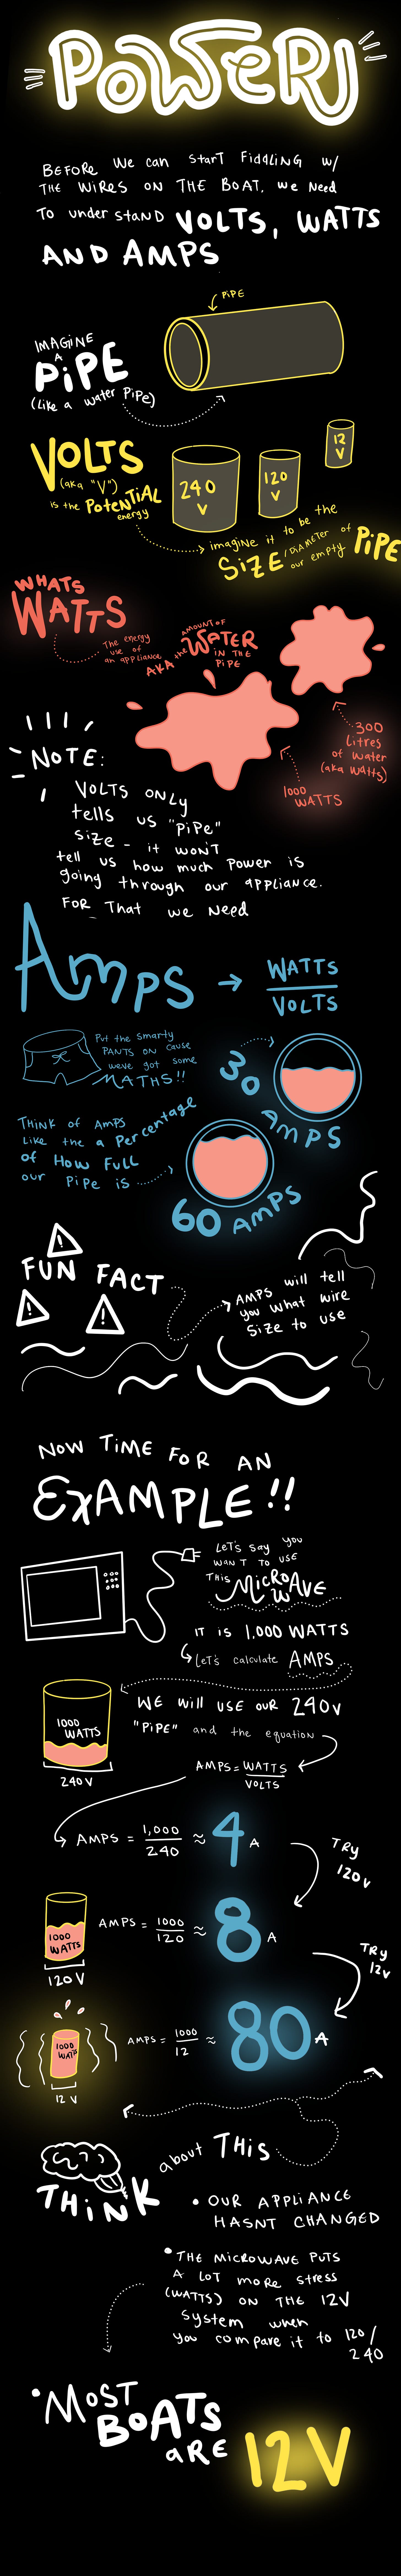 POWER
BEFORE We can Start FiDDLiNG w/
THE WiRES ON THE BOAT, we Need
To under stand VOLTS, WATTS
AND AMPS
PiPE
IMAGiNE
A
PiPE
(Like a water Pipe)
VOLTS
(aka "V")
is the PoteNTiAL
energy
240
V
120
V
12
V
imagine it to be the
SiZE/DiAMETER of
our empty PiPE
WHATS
WATTS
The energy
use of
an appliance
AKA the AMOUNT OF
WATER
IN THE
PiPE
300
Litres
of Water
(aka Watts)
1000
WATTS
NOTE:
VOLTS ONLY
tells us "PiPe"
size - it WON'T
tell us how much Power is
going through our appliance.
FOR That we Need
Amps → WATTS
VOLTS
Put the smarty
PANTS ON cause
weve got some
MATHS!!
30
AMPS
THINK of AMPS
Like the a Percentage
of How FULL
our PiPe is
60 AMPS
FUN FACT
AMPS will tell
you what wire
Size to use
NOW TiME FOR AN
EXAMPLE!!
LeT's Say you
WANT TO USE
THIS MiCROWAVE
IT iS 1,000 WATTS
Let's calculate AMPS
1000
WATTS
240 V
WE Will USE OUR 240v
"PIPE" and the equation
AMPS = WATTS
VOLTS
AMPS = 1,000
240 ≈ 4 A
TRY
120v
1000
WATTS
120 V
AMPS = 1000
120 ≈ 8 A
TRY
12v
1000
WATTS
12 V
AMPS = 1000
12 ≈ 80 A
THiNK about THiS
• OUR APPLIANCE
HASNT CHANGED
• THE MICROWAVE PUTS
A LOT MORE STRESS
(WATTS) ON THE 12V
System when
you compare it to 120/
240
• MOST
BOATS
aRE 12V